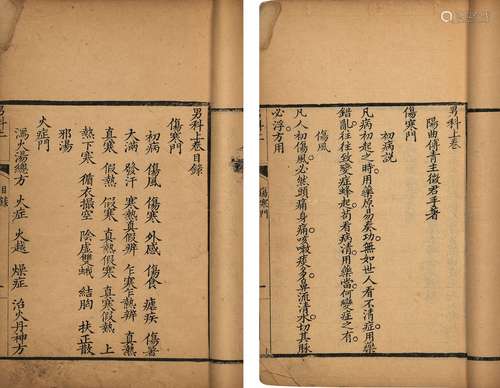 男科上卷目錄
傷寒門
初病 傷風 傷寒 外感 傷食 瘧疾 傷暑
大滿 發汗 寒熱真假辨 乍寒乍熱辨 真熱
真寒 假熱 假寒 真熱假寒 真寒假熱 上
熱下寒 循衣撮空 陰虛雙蛾 結胸 扶正散
邪湯
火症門
瀉火湯總方 火症 火越 燥症 治火丹神方
男科上
目錄
男科上卷
陽曲傅青主徵君手著
傷寒門
初病說
凡病初起之時用藥原易奏功無如世人看不清症用藥
錯亂往往致變症蜂起苟看病清用藥當何變症之有
傷風
凡人初傷風必然頭痛身痛咳嗽痰多鼻流清水切其脉
必浮方用
男科上
傷寒門